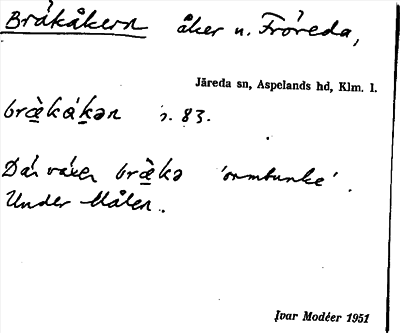 Bråkåkern åker n. Fröreda,
Järeda sn, Aspelands hd, Klm. l.
83.
Där växer 'ormbunke'.
Under Målen.
Ivar Modéer 1951